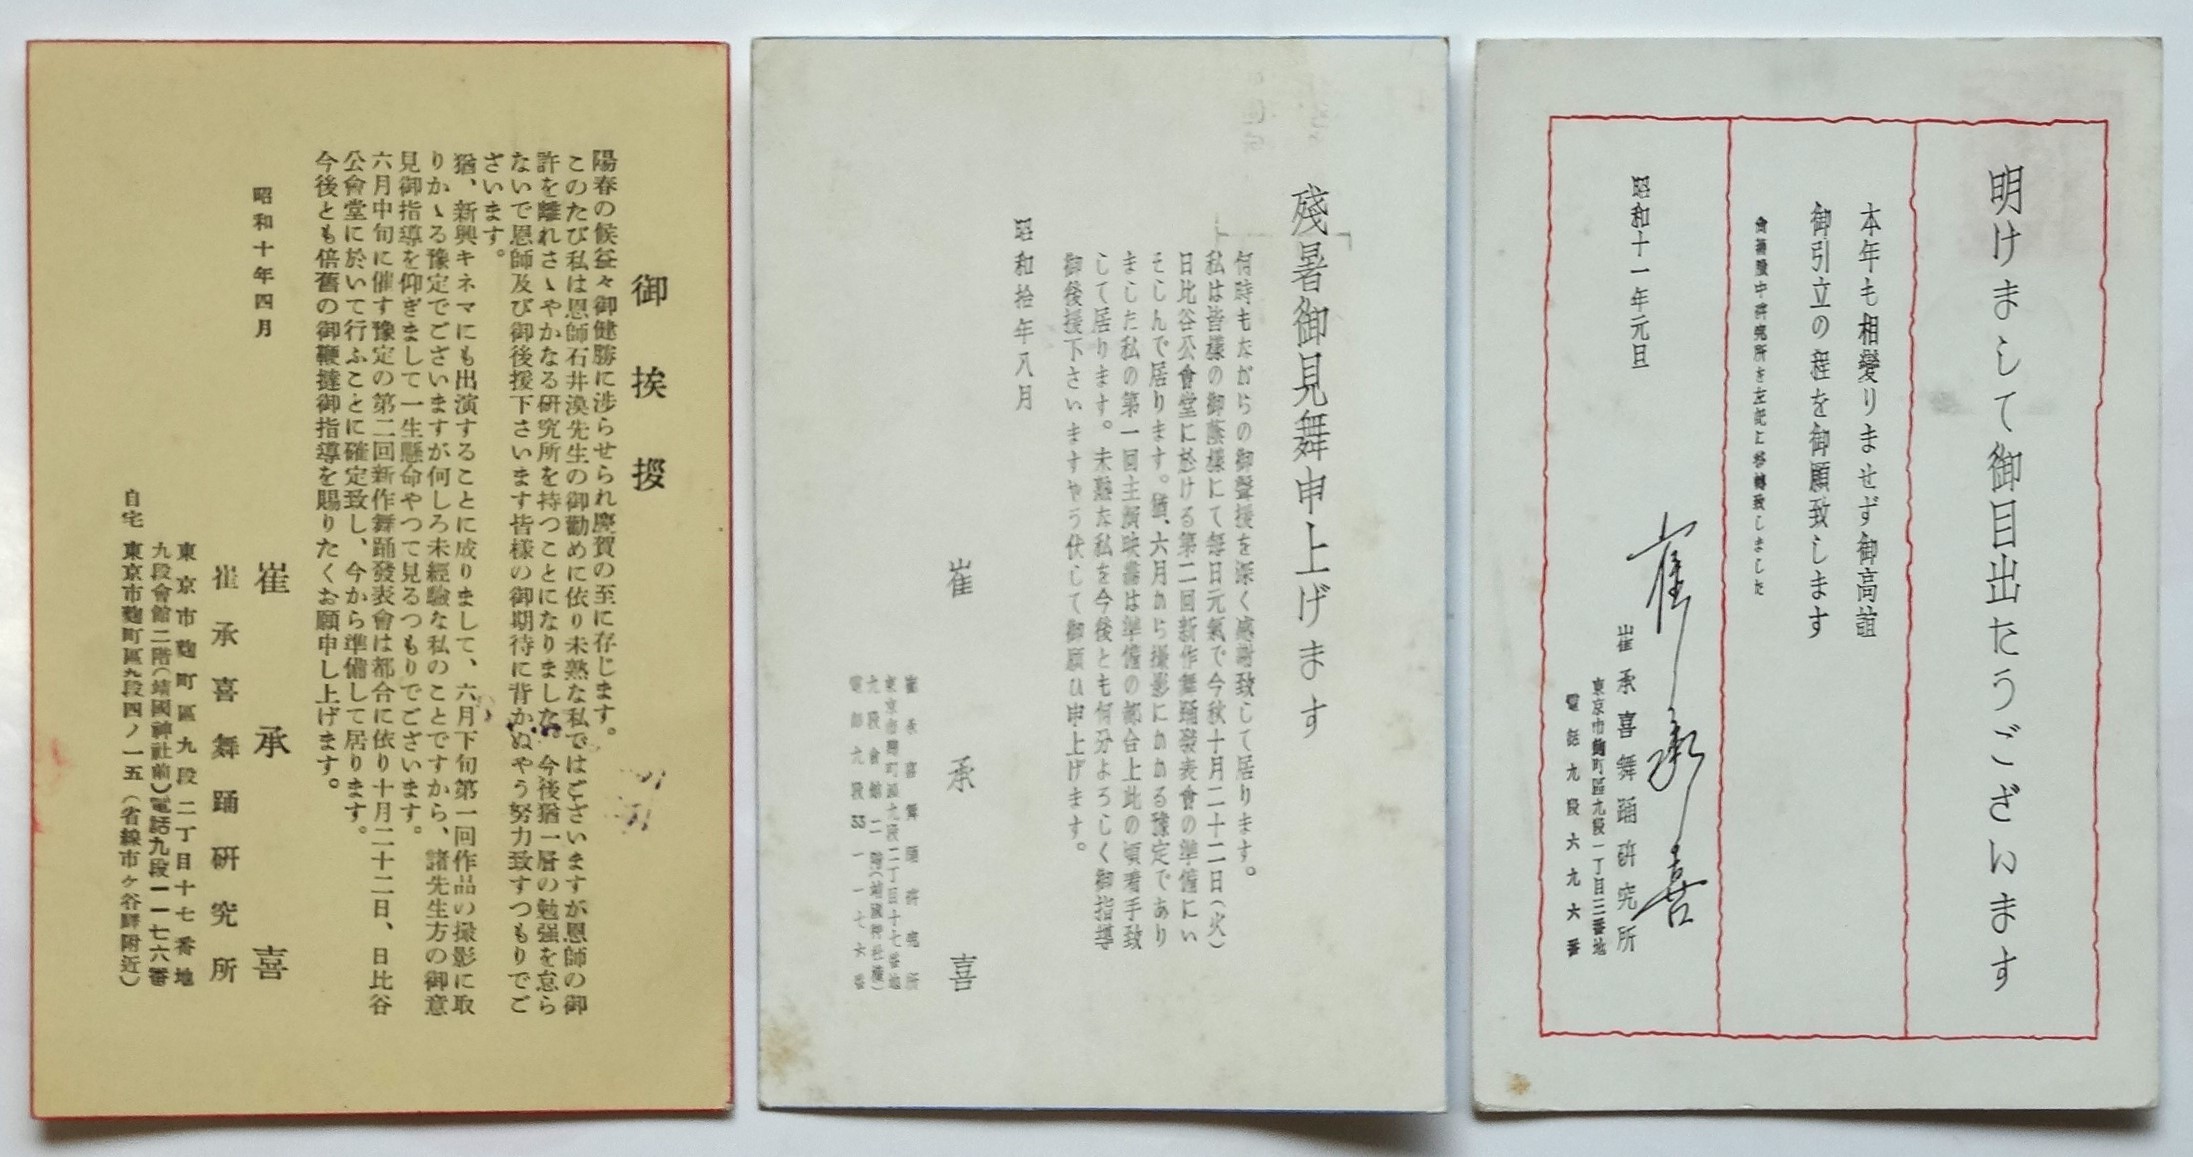 御挨拶
陽春の候益々御健勝に渉らせられ慶賀の至に存じます。
このたび私は恩師石井漠先生の御勸めに依り未熟な私ではございますが恩師の御
許を離れさゝやかなる研究所を持つことになりました。今後猶一層の勉强を怠ら
ないで恩師及び御後援下さいます皆様の御期待に背かぬやう努力致すつもりでご
ざいます。
猶、新興キネマにも出演することに成りまして、六月下旬第一回作品の撮影に取
りかゝる豫定でございますが何しろ未經驗な私のことですから、諸先生方の御意
見御指導を仰ぎまして一生懸命やつて見るつもりでございます。
六月中旬に催す豫定の第二回新作舞踊發表會は都合に依り十月二十二日、日比谷
公會堂に於いて行ふことに確定致し、今から準備して居ります。
今後とも倍舊の御鞭撻御指導を賜りたくお願申し上げます。
昭和十年四月
崔承喜
崔承喜舞踊硏究所
東京市麴町區九段二丁目十七番地
九段會館二階(靖國神社前)電話九段一一七六番
自宅 東京市麴町區九段四ノ一五(省線市ヶ谷驛附近)
殘暑御見舞申上げます
何時もながらの御聲援を深く感謝致して居ります。
私は皆樣の御蔭樣にて每日元氣で今秋十月二十二日(火)
日比谷公會堂に於ける第二回新作舞踊發表會の準備にい
そしんで居ります。猶、六月から撮影にかかる豫定であり
ました私の第一回主演映畵は準備の都合上此の頃着手致
して居ります。未熟な私を今後とも何分よろしく御指導
御後援下さいますやう伏して御願ひ申上げます。
昭和拾年八月
崔承喜
崔承喜舞踊硏究所
東京市麴町區九段二丁目十七番地
九段會館二階(靖國神社橫)
電話九段33一一七六番
明けまして御目出たうございます
本年も相變りませず御高誼
御引立の程を御願致します
會館階中硏究所を左記に移轉致しました
昭和十一年元旦
崔承喜
崔承喜舞踊硏究所
東京市麴町區九段一丁目三番地
電話九段六九六番